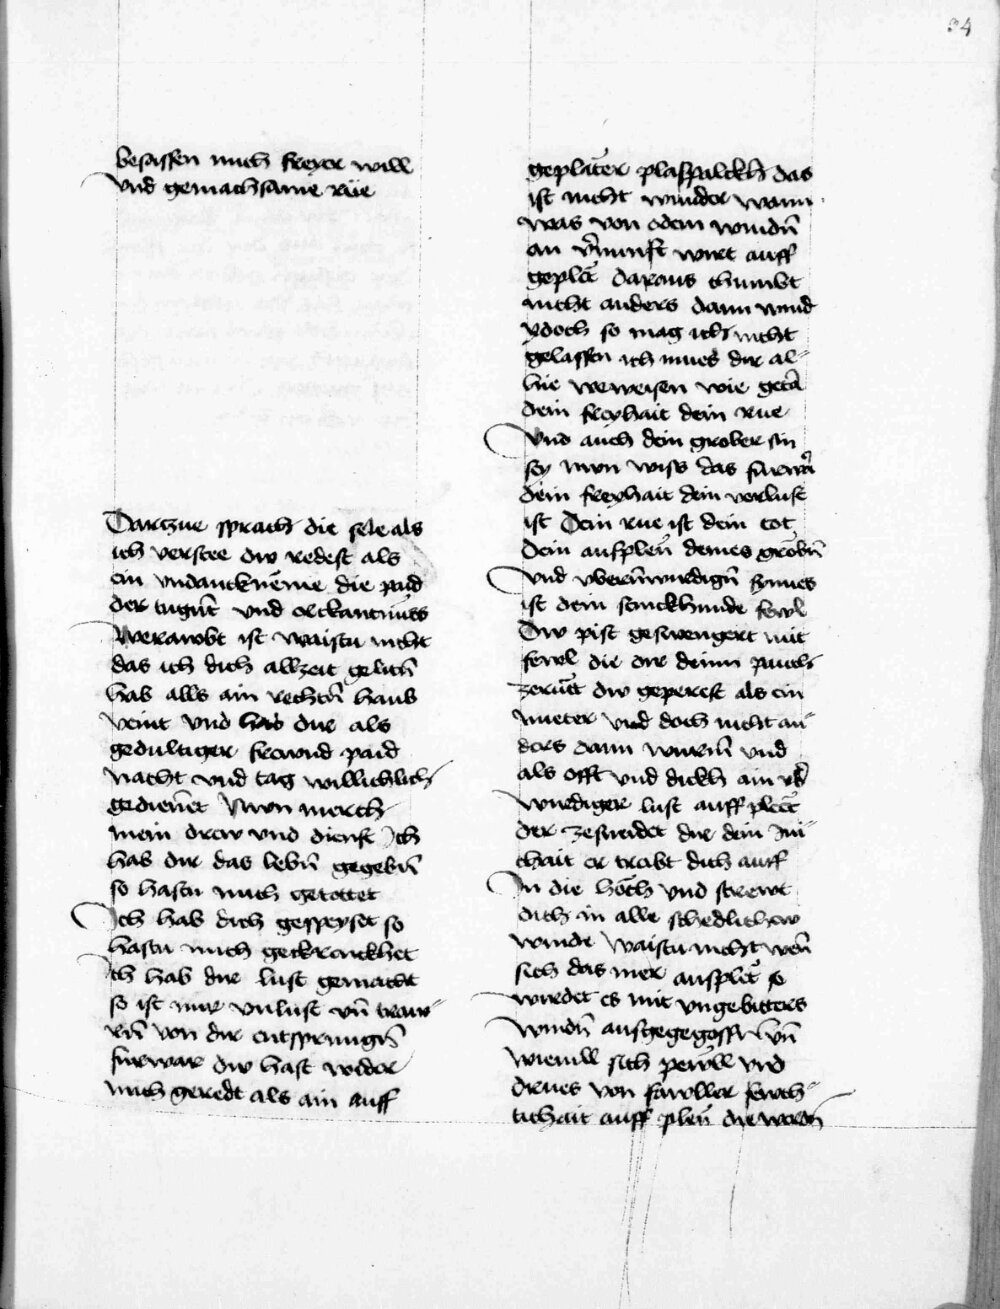 34
besassen mich freyer will
vnd gemachsame rue
Dartzue sprach die sele als
ich verstee dw redest als
ein vndancknēme die paid
der tugūt vnd erkantnüss
Werawbt ist waistu nicht
das ich dich allzeit gelitn̄
hab alls ain rechtn̄ haus
veint vnd hab dir als
gedultiger frewnd paid
nacht vnd tag willichlich
gedienet Nwn merckh
mein drew vnd dienst Ich
hab dir das lebn̄ gegebn̄
so hastu mich getottet
Ich hab dich gespeyset so
hastu mich gechrenckhet
Ich hab dir lust gemacht
so ist mir vnlust vn̄ traw-
rn̄ von dir entsprungn̄
fürwar dw hast wider
mich geredt als ain auff
geplātter plaspalckh das
ist nicht wunder wann
was von odem windn̄
an v̄nunft wirt auff
geplēt daraus chumbt
nicht anders dann wind
ydoch so mag ich nicht
gelassen ich mues dir al-
hie weweisen wie getā
dein freyhait dein rue
Vnd auch dein grober sin
sey Nwn wiss das fürwar
dein freyhait dein verlust
ist Dein rue ist dein tot
Dein aufplen̄ deines grobn̄
Vnd vbernwirdign̄ synnes
ist dein senckhunde fewl
Dw pist geswengert mit
fewl die dir deinn pauch
zerüt dw geperest als ein
mueter vnd doch nicht an-
ders dann würm̄ vnd
als offt vnd dickh ain vb̄
wirdiger lust auff plēet
der zesneidet dir dein Ini-
chait er treibt dich auff
In die höch vnd strewt
dich in alle schedlichew
winde Waistu nicht wen̄
sich das mer aufplēt so
wirdet es mit vngebitters
windn̄ aufgegegossn̄ vn̄
wienill sich pewll vnd
drues von fawller fewch-
tichait auff plen̄ die werdn̄